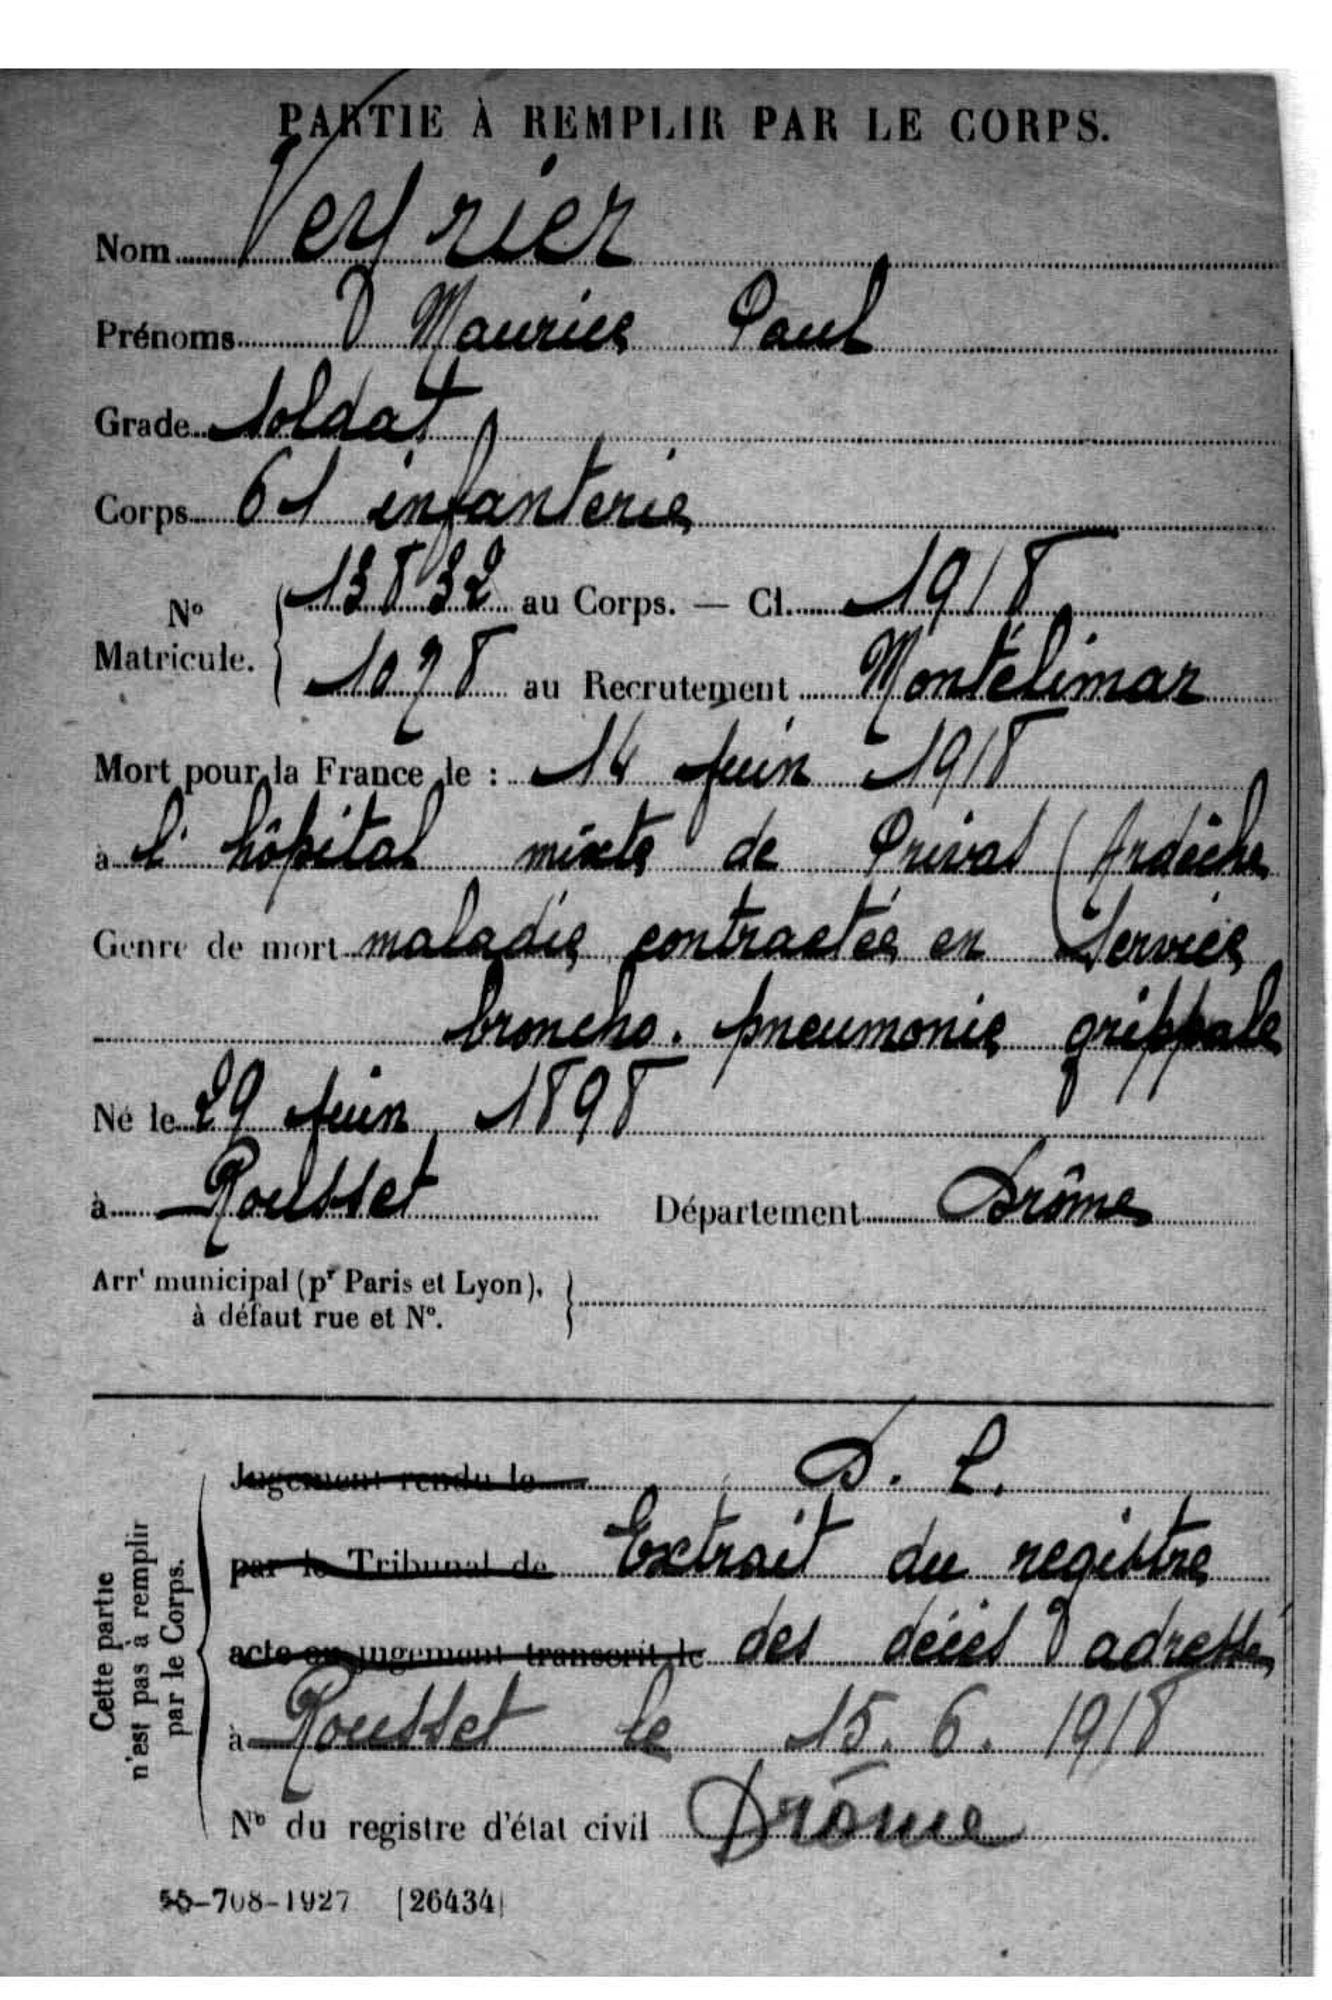 PARTIE À REMPLIR PAR LE CORPS.
Nom Veyrier
Prénoms Maurice Paul
Grade Soldat
Corps 61 infanterie
N° Matricule. 13832 au Corps. — Cl. 1918
1078 au Recrutement Montélimar
Mort pour la France le : 14 Juin 1918
à l'hôpital mixte de Privas (Ardèche
Genre de mort maladie contractée en Service
broncho. pneumonie grippale
Né le 29 Juin 1898
à Rousset Département Drôme
Arrt municipal (pr Paris et Lyon),
à défaut rue et N°.
Cette partie
n'est pas à remplir
par le Corps.
Jugement rendu le D. L.
par le Tribunal de Extrait du registre
acte ou jugement transcrit le des décès adressé
à Rousset le 15. 6. 1918
N° du registre d'état civil Drôme
55-708-1927 [26434]